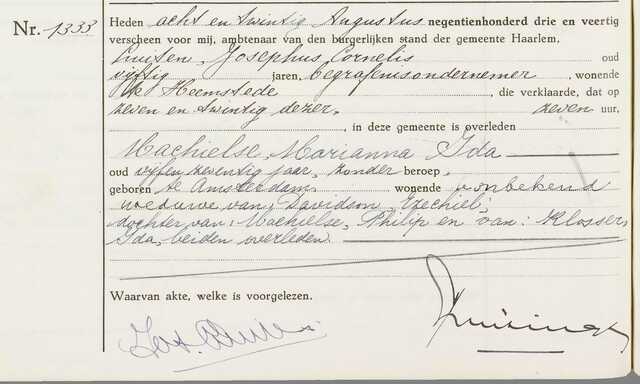 Nr. 1333
Heden acht en twintig Augustus negentienhonderd drie en veertig
verscheen voor mij, ambtenaar van den burgerlijken stand der gemeente Haarlem,
Luiten, Josephus Cornelis oud
vijftig jaren, begrafenisondernemer, wonende
te Heemstede, die verklaarde, dat op
zeven en twintig dezer, zeven uur,
, in deze gemeente is overleden
Machielse, Marianna Ida
oud vijfenzeventig jaar, zonder beroep,
geboren te Amsterdam wonende onbekend
weduwe van: Davidson, Ezechiel;
dochter van: Machielse, Philip en van: Klosser,
Ida, beiden overleden.
Waarvan akte, welke is voorgelezen.